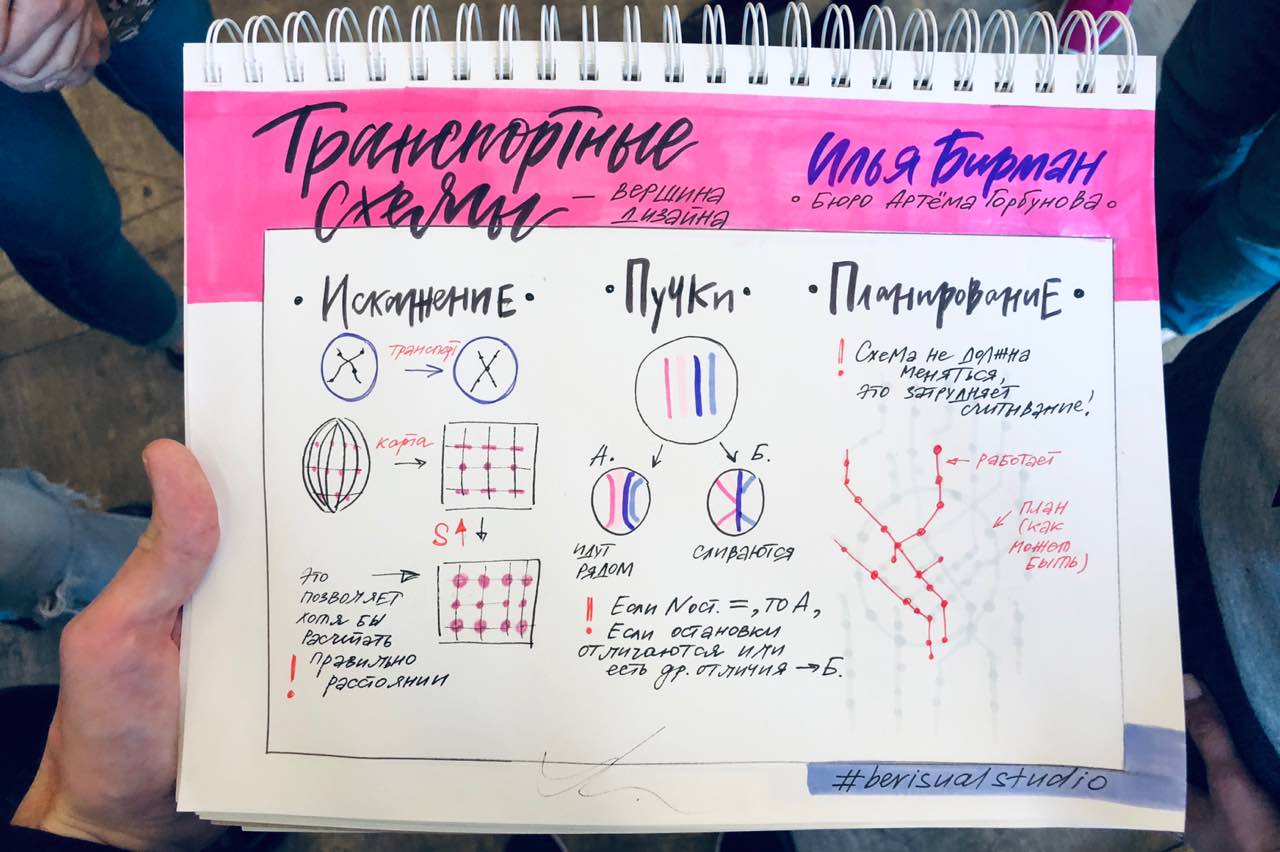 Транспортные
схемы — вершина
дизайна
Илья Бирман
• Бюро Артёма Горбунова •
• Искажение •
транспорт
карта
S↑ ↓
это →
позволяет
хотя бы
расчитать
! правильно
расстоянии
• Пучки •
А.
Б.
идут
рядом
сливаются
!! Если Nост. =, то А,
Если остановки
отличаются или
есть др. отличия → Б.
• Планирование •
! Схема не должна
меняться,
это затрудняет
считывание!
← работает
план
(как
может
быть)
#berisualstudio